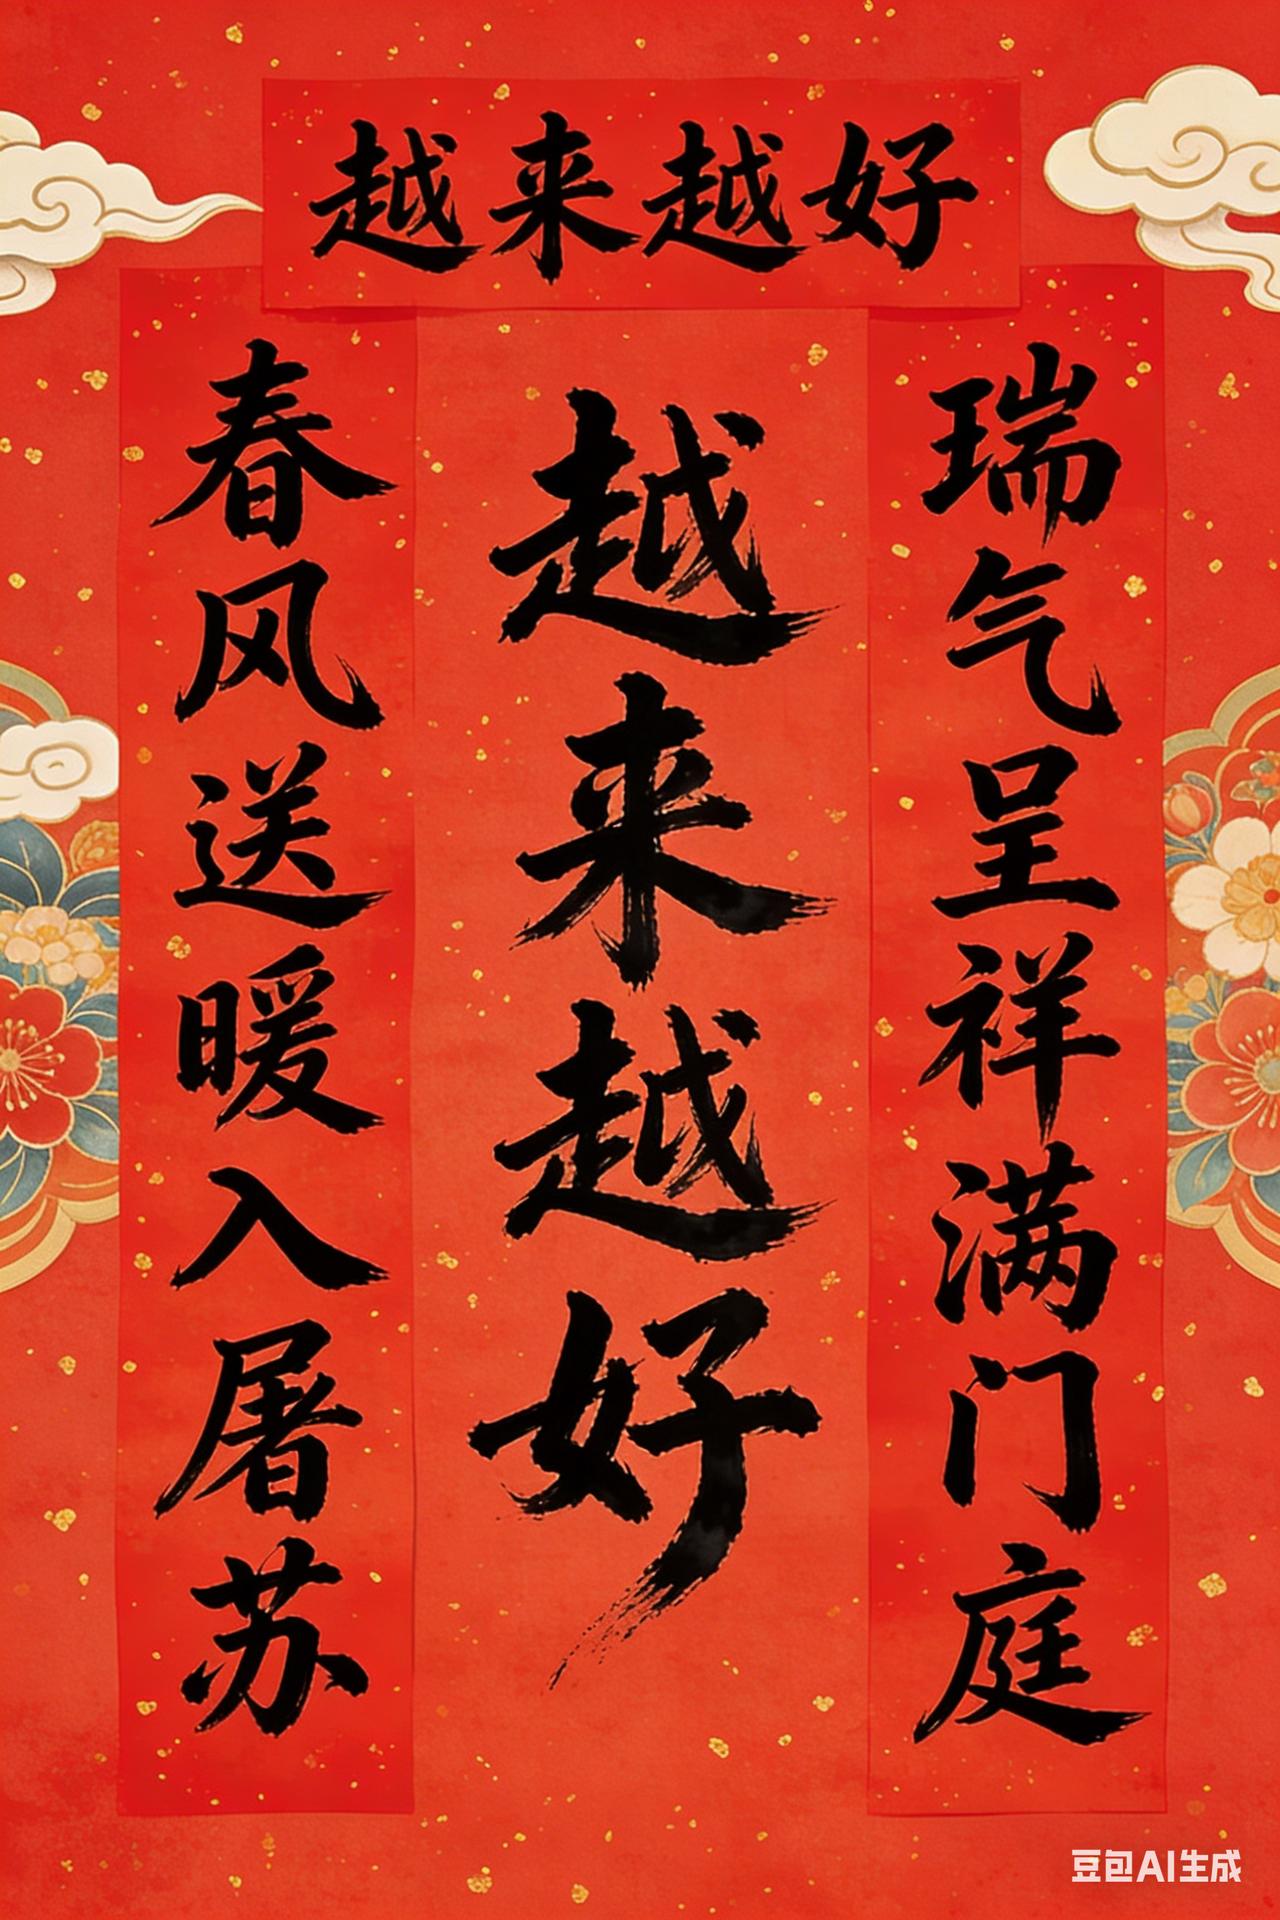 越来越好
瑞气呈祥满门庭
越来越好
春风送暖入屠苏
豆包AI生成